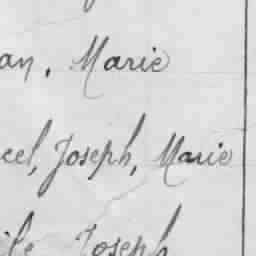 an, Marie
cel, Joseph, Marie
ile Joseph